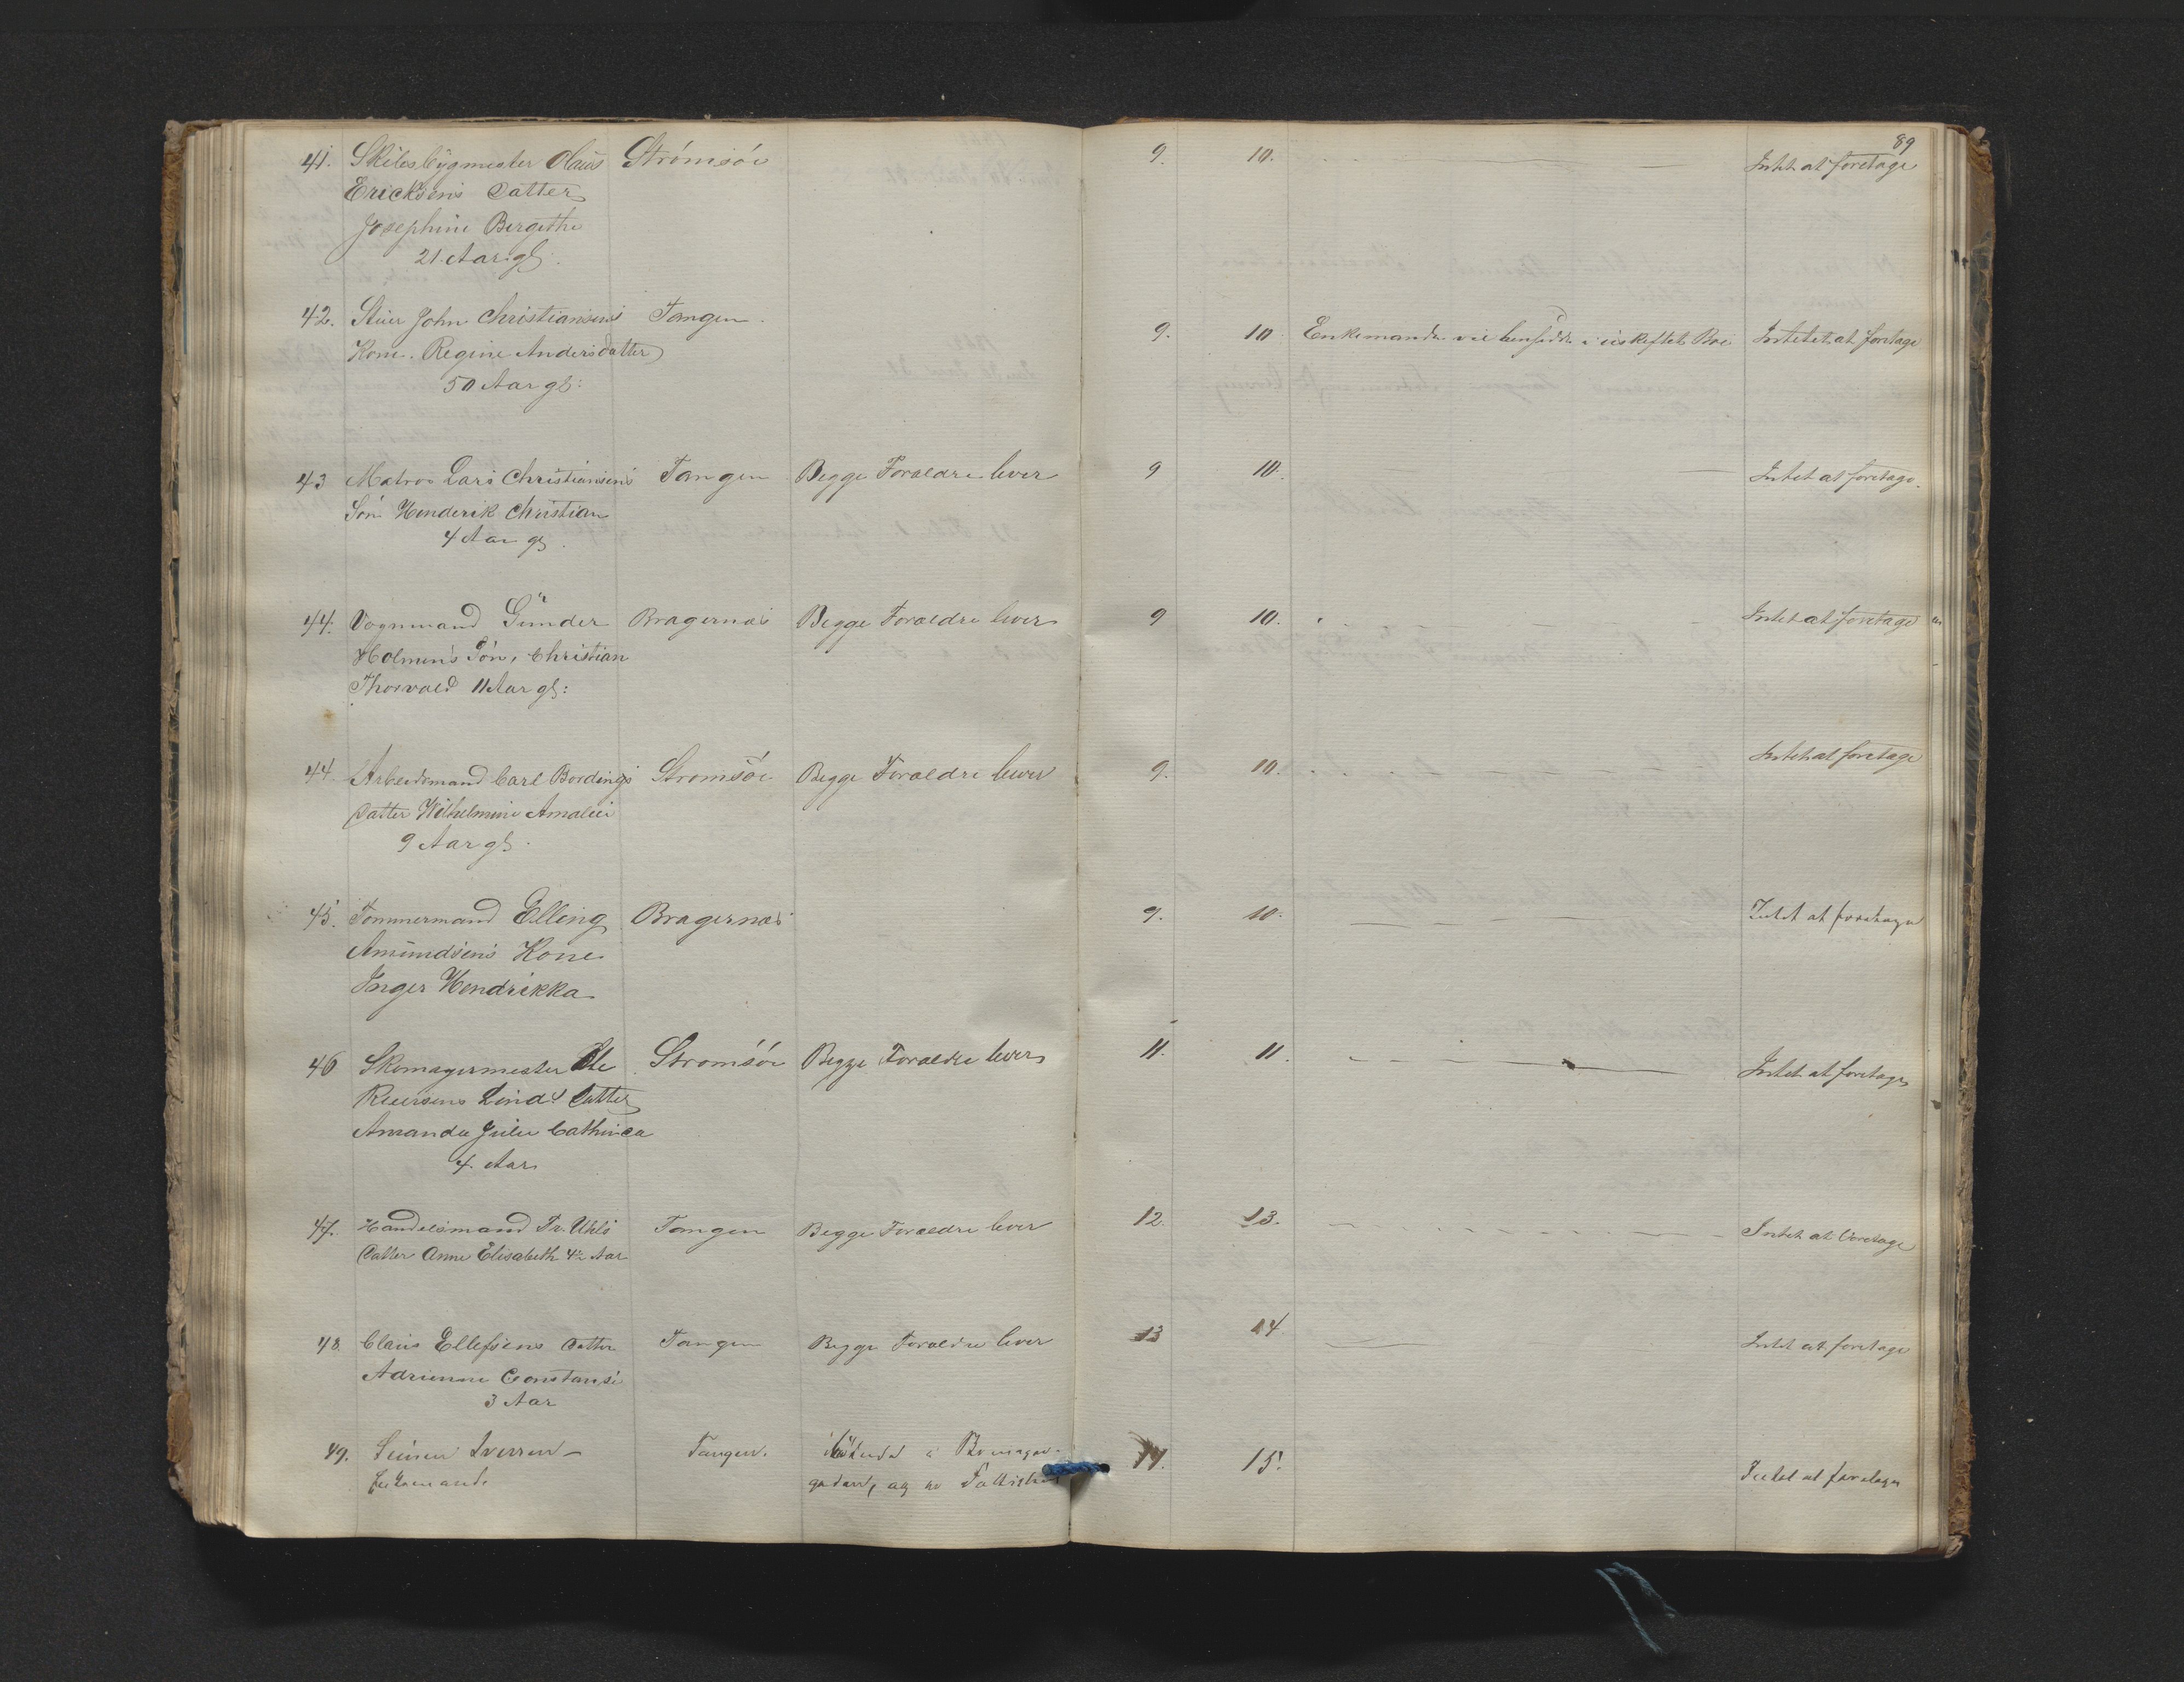 89
41. Skibsbÿgmester Olaus Strömsöe 9. 10. Intet at foretage
Ericksens Datter
Josephine Bergethe
21 Aar gl.
42. John Christiansens Tangen. 9. 10 Enkemanden vil hensidde i uskiftet Boe Intetet at foretage
Kone. Regine Andersdatter
50 Aar gl:
43 Matros Lars Christiansens Tangen Begge Foraeldre lever 9 10. Intet at foretage.
Sön Henderik Christian
4 Aar gl.
44. Vognmand Gunder Bragernæs Begge Foraeldre lever 9 10. Intet at foretage
Holmens Sön, Christian
Thorvald 11 Aar gl:
44. Arbeidsmand Carl Bordings Stromsöe Begge Foraeldre lever 9. 10. Intet at foretage
Datter Wilhelmine Amalie
9 Aar gl.
45. Tommermand Elling Bragernæs 9. 10. Intet at foretage
Amundsens Kone
Inger Hendrikka
46 Skomagermester Ole Stromsöe Begge Foraeldre lever 11. 11. Intet at foretage
Linds Datter
Amanda Julie Cathinca
4. Aar
47. Handelsmand Uhls Tangen Begge Foraeldre lever 12. 13. Intet at foretage
Datter Anne Elisabeth Aar
48. Claus Ellefsens Datter Tangen Begge Foraeldre lever 13 14 Intet at foretage
Adrienne Constansi
3 Aar
49. Iversen – Tangen. i 14. 15. Intet at foretage
Enkemand. og